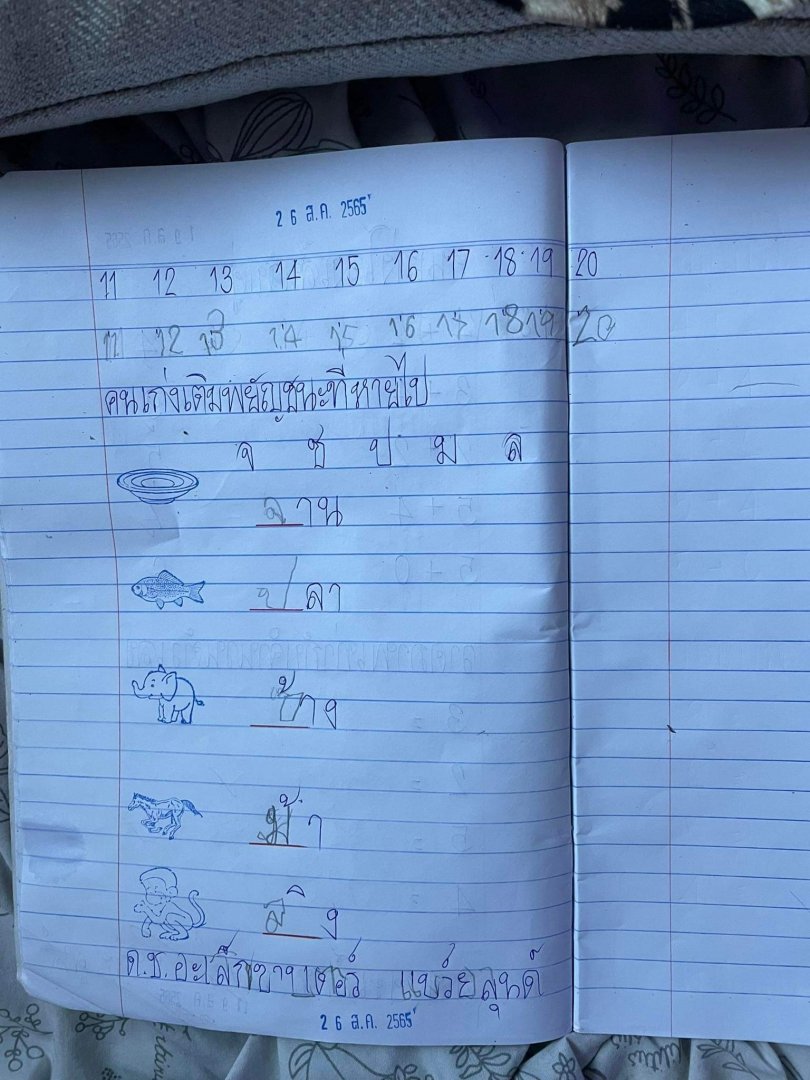 26 ส.ค. 2565
11 12 13 14 15 16 17 18 19 20
11 12 13 14 15 16 17 18 19 20
คนเก่งเติมพยัญชนะที่หายไป
จ ช ป ม ล
จาน
ปลา
ช้าง
ม้า
ลิง
ด.ช. อะเล็กซานเดอร์
26 ส.ค. 2565